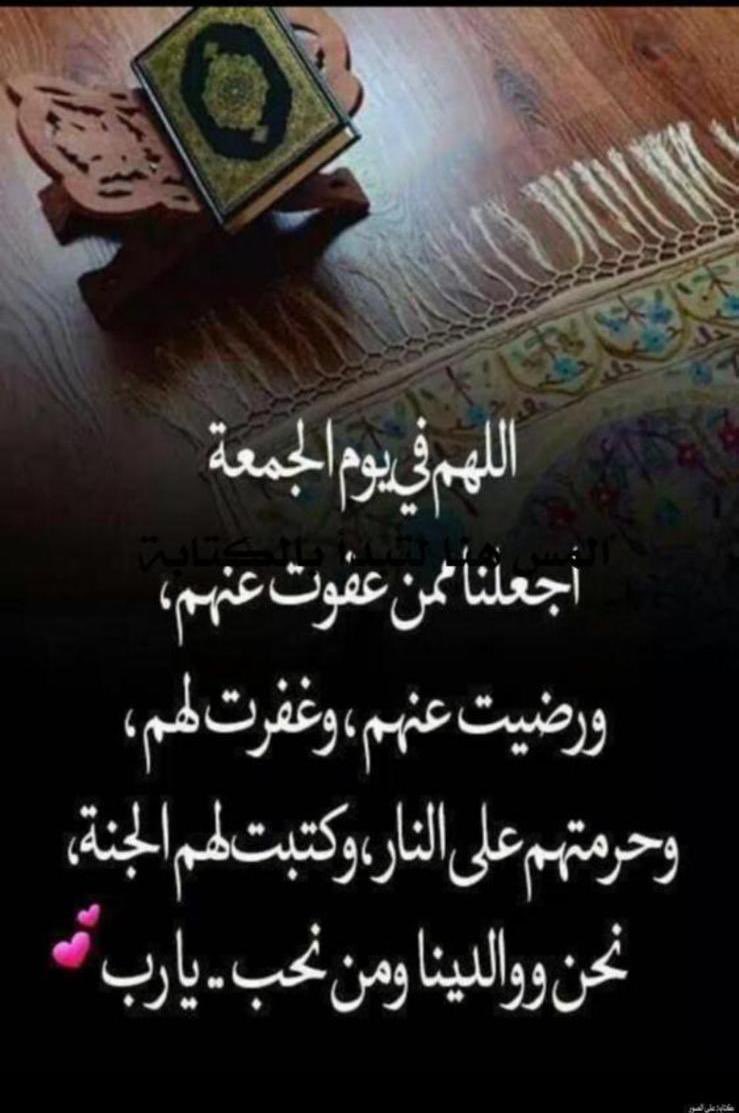 اللهم في يوم الجمعة
المس هنا لتبدأ بالكتابة
اجعلنا ممن عفوت عنهم،
ورضيت عنهم، وغفرت لهم،
وحرمتهم على النار، وكتبت لهم الجنة،
نحن ووالدينا ومن نحب .. يا رب 💕
كتابة على الصور